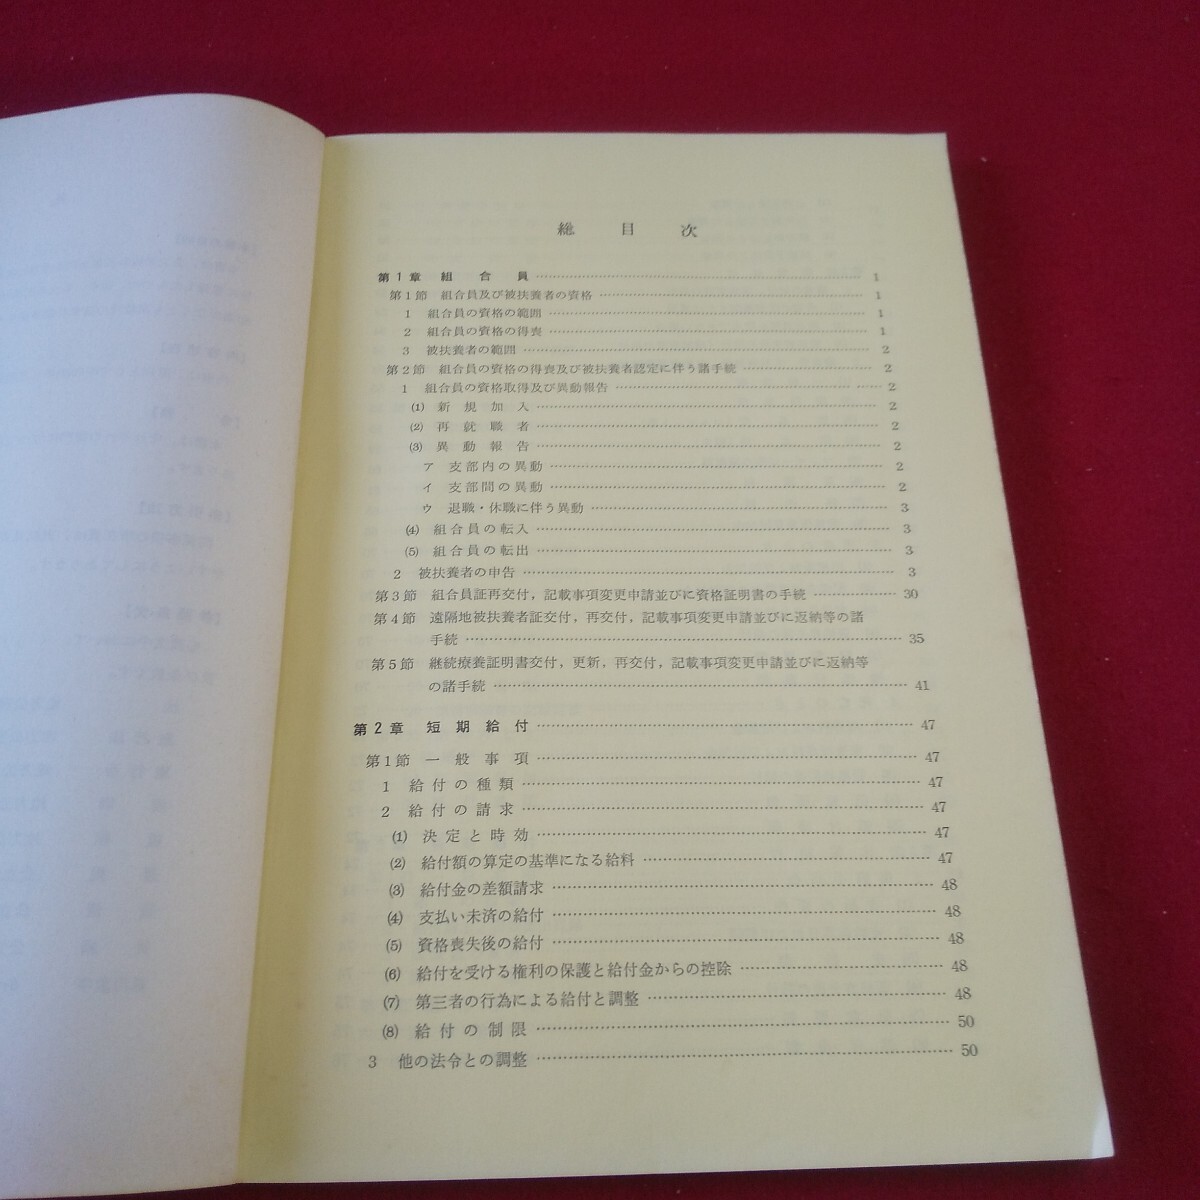 総目次
第1章 組合員 …… 1
第1節 組合員及び被扶養者の資格 …… 1
1 組合員の資格の範囲 …… 1
2 組合員の資格の得喪 …… 1
3 被扶養者の範囲 …… 2
第2節 組合員の資格の得喪及び被扶養者認定に伴う諸手続 …… 2
1 組合員の資格取得及び異動報告 …… 2
(1) 新規加入 …… 2
(2) 再就職者 …… 2
(3) 異動報告 …… 2
ア 支部内の異動 …… 2
イ 支部間の異動 …… 2
ウ 退職・休職に伴う異動 …… 3
(4) 組合員の転入 …… 3
(5) 組合員の転出 …… 3
2 被扶養者の申告 …… 3
第3節 組合員証再交付，記載事項変更申請並びに資格証明書の手続 …… 30
第4節 遠隔地被扶養者証交付，再交付，記載事項変更申請並びに返納等の諸
手続 …… 35
第5節 継続療養証明書交付，更新，再交付，記載事項変更申請並びに返納等
の諸手続 …… 41
第2章 短期給付 …… 47
第1節 一般事項 …… 47
1 給付の種類 …… 47
2 給付の請求 …… 47
(1) 決定と時効 …… 47
(2) 給付額の算定の基準になる給料 …… 47
(3) 給付金の差額請求 …… 48
(4) 支払い未済の給付 …… 48
(5) 資格喪失後の給付 …… 48
(6) 給付を受ける権利の保護と給付金からの控除 …… 48
(7) 第三者の行為による給付と調整 …… 48
(8) 給付の制限 …… 50
3 他の法令との調整 …… 50